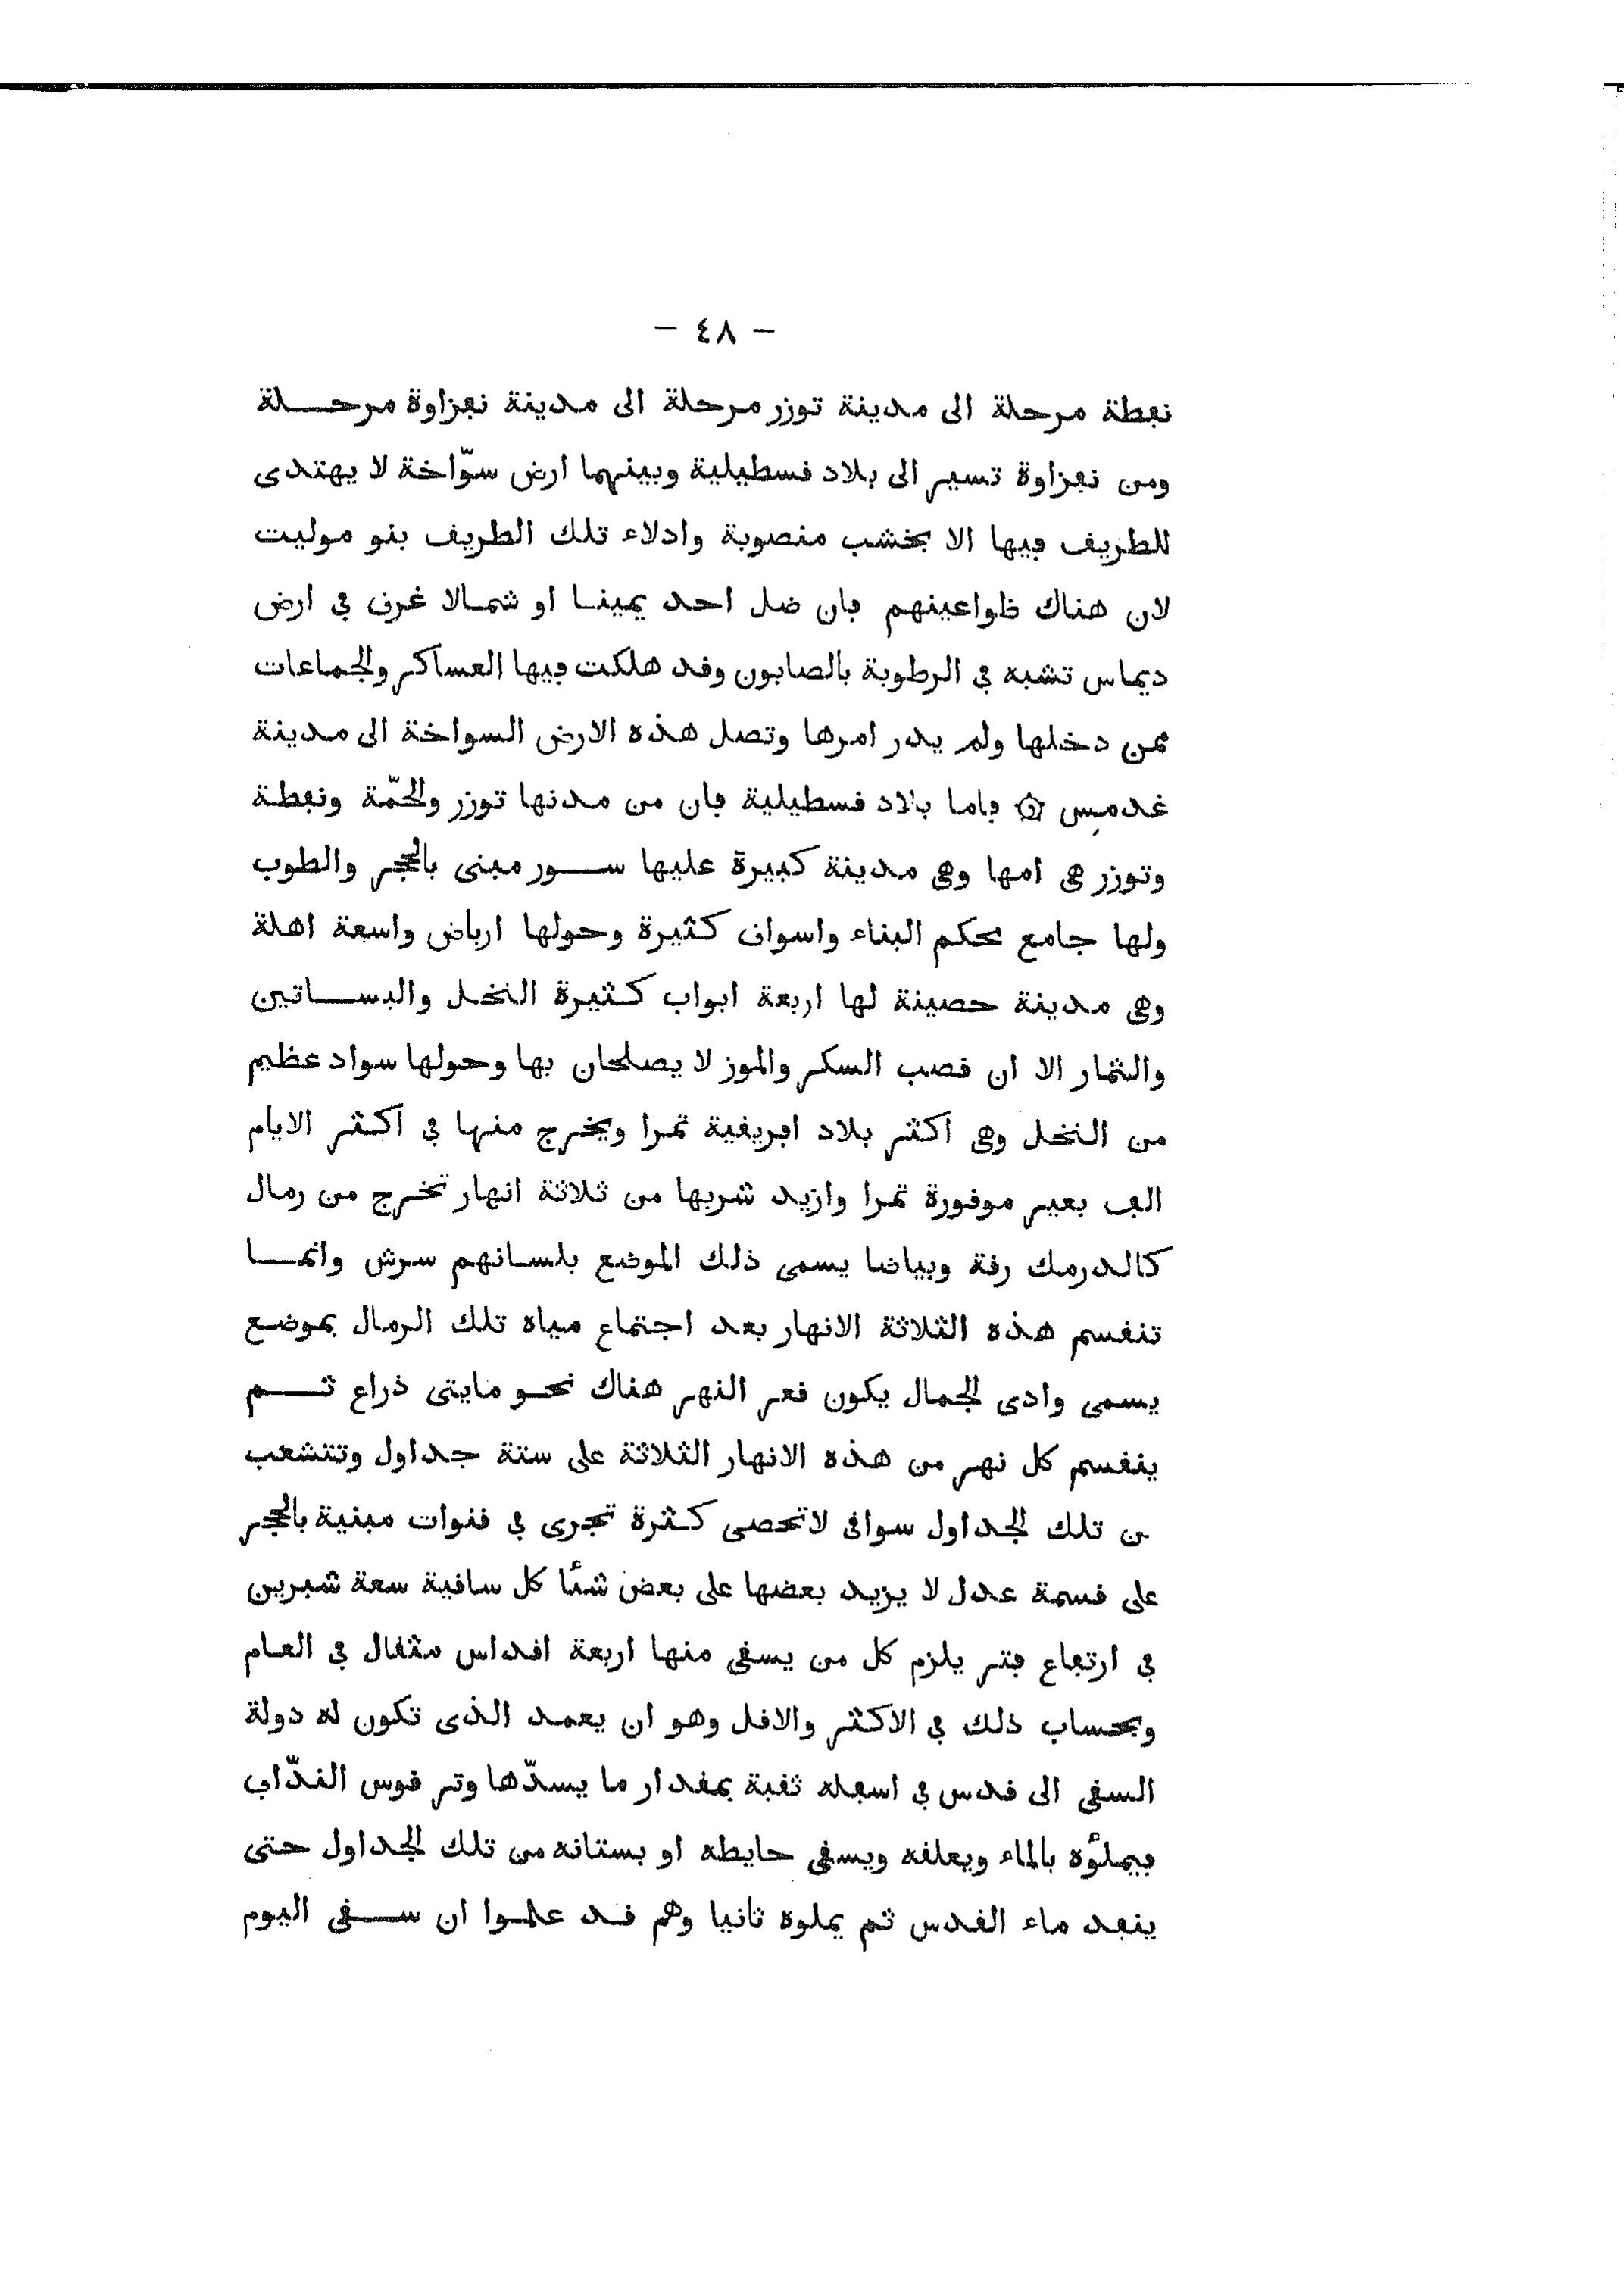 - ٤٨ -
نفطة مرحلة الى مدينة توزر مرحلة الى مدينة نفزاوة مرحلة
ومن نفزاوة تسير الى بلاد قسطيلية وبينهما ارض سوّاخة لا يهتدى
للطريق فيها الا بخشب منصوبة وادلاء تلك الطريق بنو موليت
لان هناك ظواعينهم فان ضل احد يمينا او شمالا غرق في ارض
ديماس تشبه في الرطوبة بالصابون وقد هلكت فيها العساكر والجماعات
ممن دخلها ولم يدر امرها وتصل هذه الارض السواخة الى مدينة
غدمس ۞ فاما بلاد قسطيلية فان من مدنها توزر والحمّة ونفطة
وتوزر هى امها وهى مدينة كبيرة عليها سور مبنى بالحجر والطوب
ولها جامع محكم البناء واسواق كثيرة وحولها ارباض واسعة اهلة
وهى مدينة حصينة لها اربعة ابواب كثيرة النخل والبساتين
والثمار الا ان قصب السكر والموز لا يصلحان بها وحولها سواد عظيم
من النخل وهى اكثر بلاد افريقية تمرا ويخرج منها في اكثر الايام
الف بعير موقورة تمرا وازيد شربها من ثلاثة انهار تخرج من رمال
كالدرمك رقة وبياضا يسمى ذلك الموضع بلسانهم سرش وانما
تنقسم هذه الثلاثة الانهار بعد اجتماع مياه تلك الرمال بموضع
يسمى وادى الجمال يكون قعر النهر هناك نحو مايتى ذراع ثم
ينقسم كل نهر من هذه الانهار الثلاثة على ستة جداول وتتشعب
من تلك الجداول سواقى لا تحصى كثرة تجرى في قنوات مبنية بالحجر
على قسمة عدل لا يزيد بعضها على بعض شئا كل ساقية سعة شبرين
في ارتفاع فتر يلزم كل من يسقى منها اربعة اقداس مثقال في العام
وبحساب ذلك في الاكثر والاقل وهو ان يعمد الذى تكون له دولة
السقى الى قدس في اسفله ثقبة بمقدار ما يسدّها وتر قوس الندّاف
فيملؤه بالماء ويعلقه ويسقى حايطه او بستانه من تلك الجداول حتى
ينفد ماء القدس ثم يملوه ثانيا وهم قد علموا ان سقى اليوم